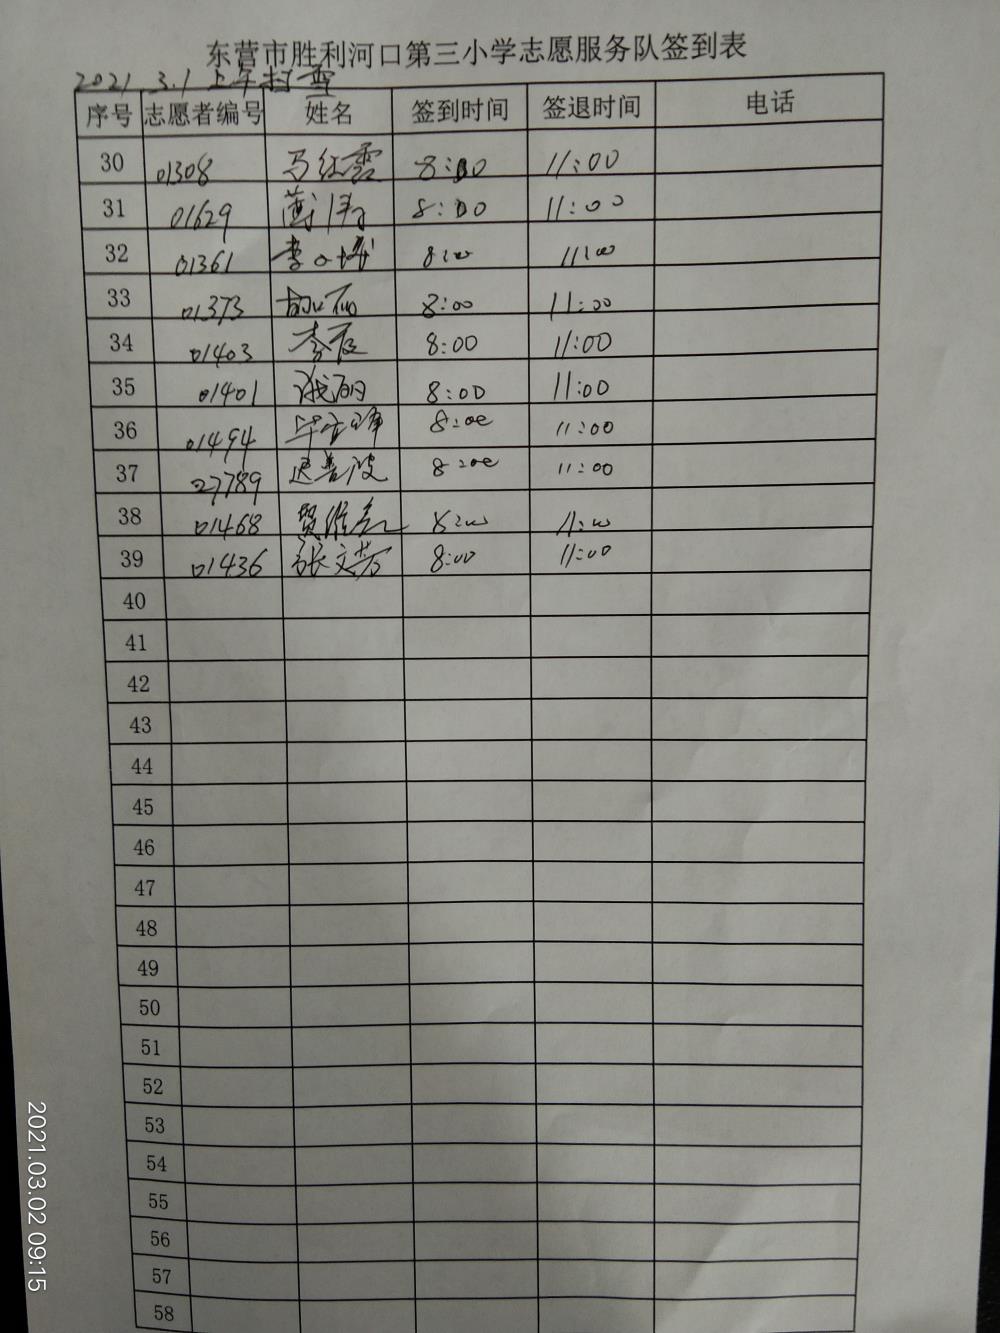 东营市胜利河口第三小学志愿服务队签到表
2021 3.1 上午扫雪
序号 志愿者编号 姓名 签到时间 签退时间 电话
30 01308 马红霞 8:00 11:00
31 01629 8:00 11:00
32 01361 李 8:00 11:00
33 01373 8:00 11:00
34 01403 8:00 11:00
35 01401 8:00 11:00
36 01494 8:00 11:00
37 27789 迟善波 8:00 11:00
38 01468 贾 8:00 11:00
39 01436 张文芳 8:00 11:00
40
41
42
43
44
45
46
47
48
49
50
51
52
53
54
55
56
57
58
2021.03.02 09:15